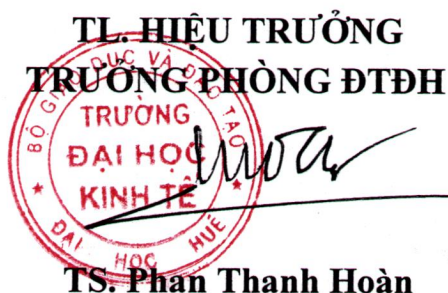 TL. HIỆU TRƯỞNG
TRƯỞNG PHÒNG ĐTĐH
BỘ GIÁO DỤC VÀ ĐÀO TẠO
TRƯỜNG
ĐẠI HỌC
KINH TẾ
ĐẠI HỌC HUẾ
TS. Phan Thanh Hoàn